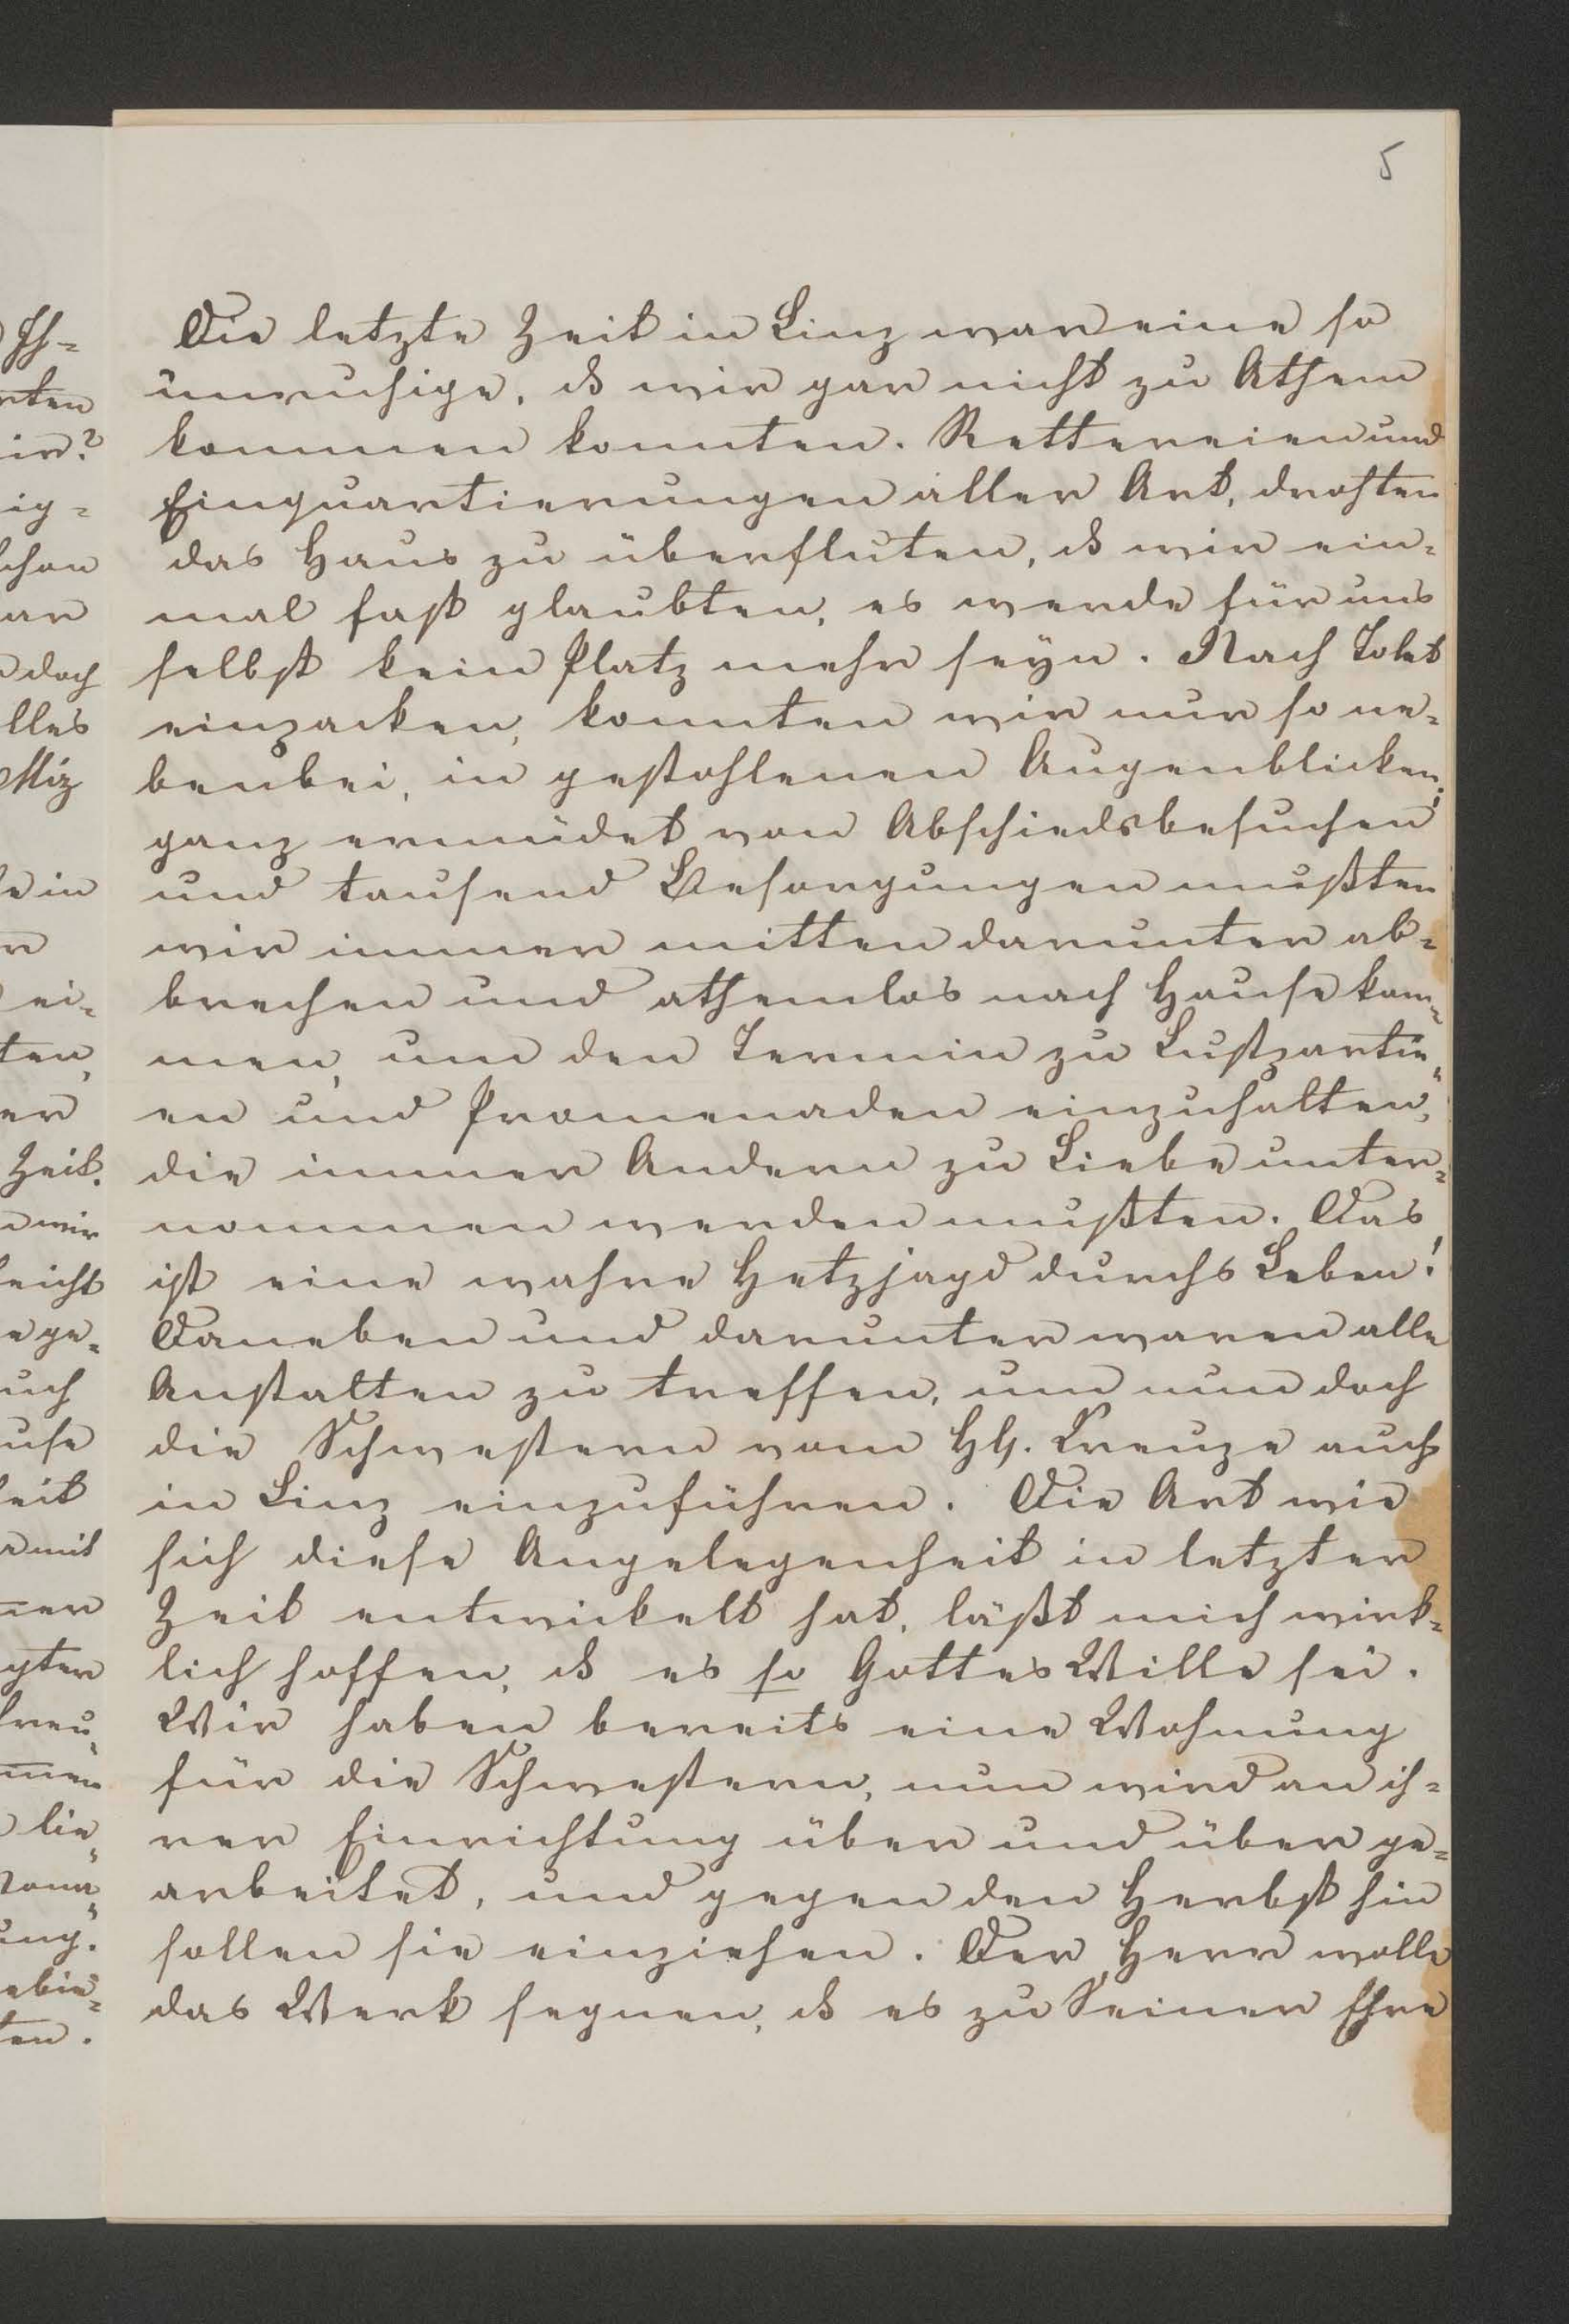 5
Die letzte Zeit in Linz war eine so
unruhige, dß wir gar nicht zu Athem
kommen konnten. Rettereien und
Einquartierungen aller Art, drohten
das Haus zu überfluten, dß wir ein-
mal fast glaubten, es werde für uns
selbst kein Platz mehr seyn. Nach Tolet
einpacken, konnten wir nur so ne-
benbei, in gestohlenen Augenblicken;
ganz ermüdet von Abschiedsbesuchen
und tausend Besorgungen mußten
wir immer mitten darunter ab-
brechen und athemlos nach Hause kom-
men, um den Termin zu Lustpartie-
en und Promenaden einzuhalten,
die immer Andern zu Liebe unter-
nommen werden mußten. Das
ist eine wahre Hetzjagd durchs Leben!
Daneben und darunter waren alle
Anstalten zu treffen, um nun doch
die Schwestern vom Hlg. Kreuze auch
in Linz einzuführen. Die Art wie
sich diese Angelegenheit in letzter
Zeit entwickelt hat, läßt mich wirk-
lich hoffen, dß es so Gottes Wille sei.
Wir haben bereits eine Wohnung
für die Schwestern, nun wird an ih-
rer Einrichtung über und über ge-
arbeitet, und gegen den Herbst hin
sollen sie einziehen. Der Herr wolle
das Werk segnen, dß es zu Seiner Ehre